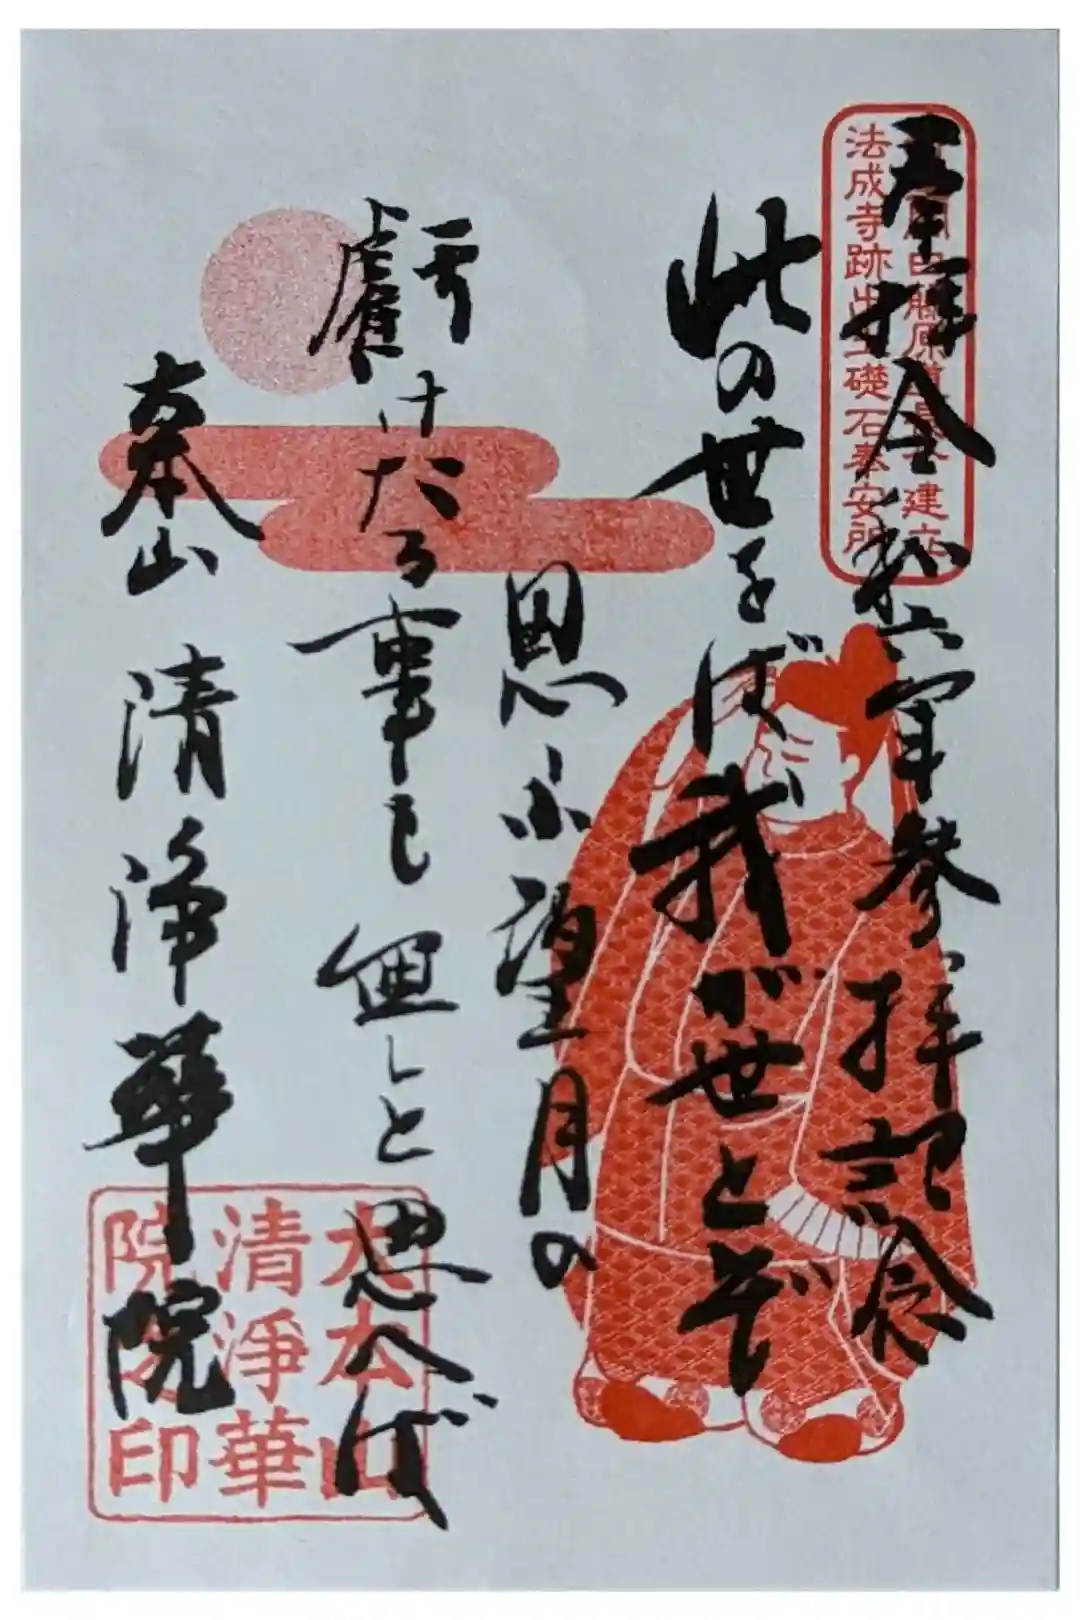 奉拝 令和六年参拝記念
藤原道長公建立
法成寺跡出土礎石奉安所
此の世をば我が世とぞ
思ふ望月の
虧けたる事も無しと思へば
大本山 清浄華院
大本山
清淨華
院之印